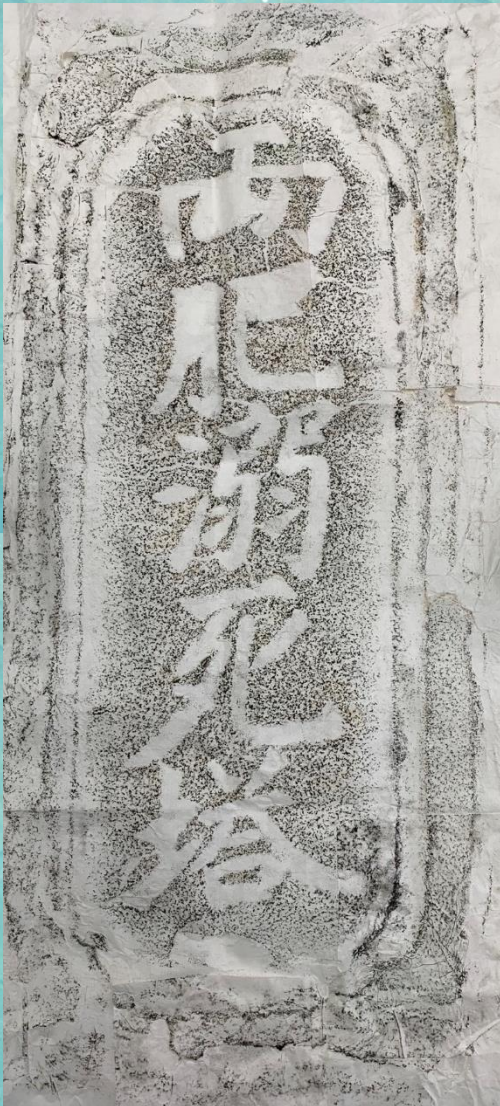 丙溺死塔